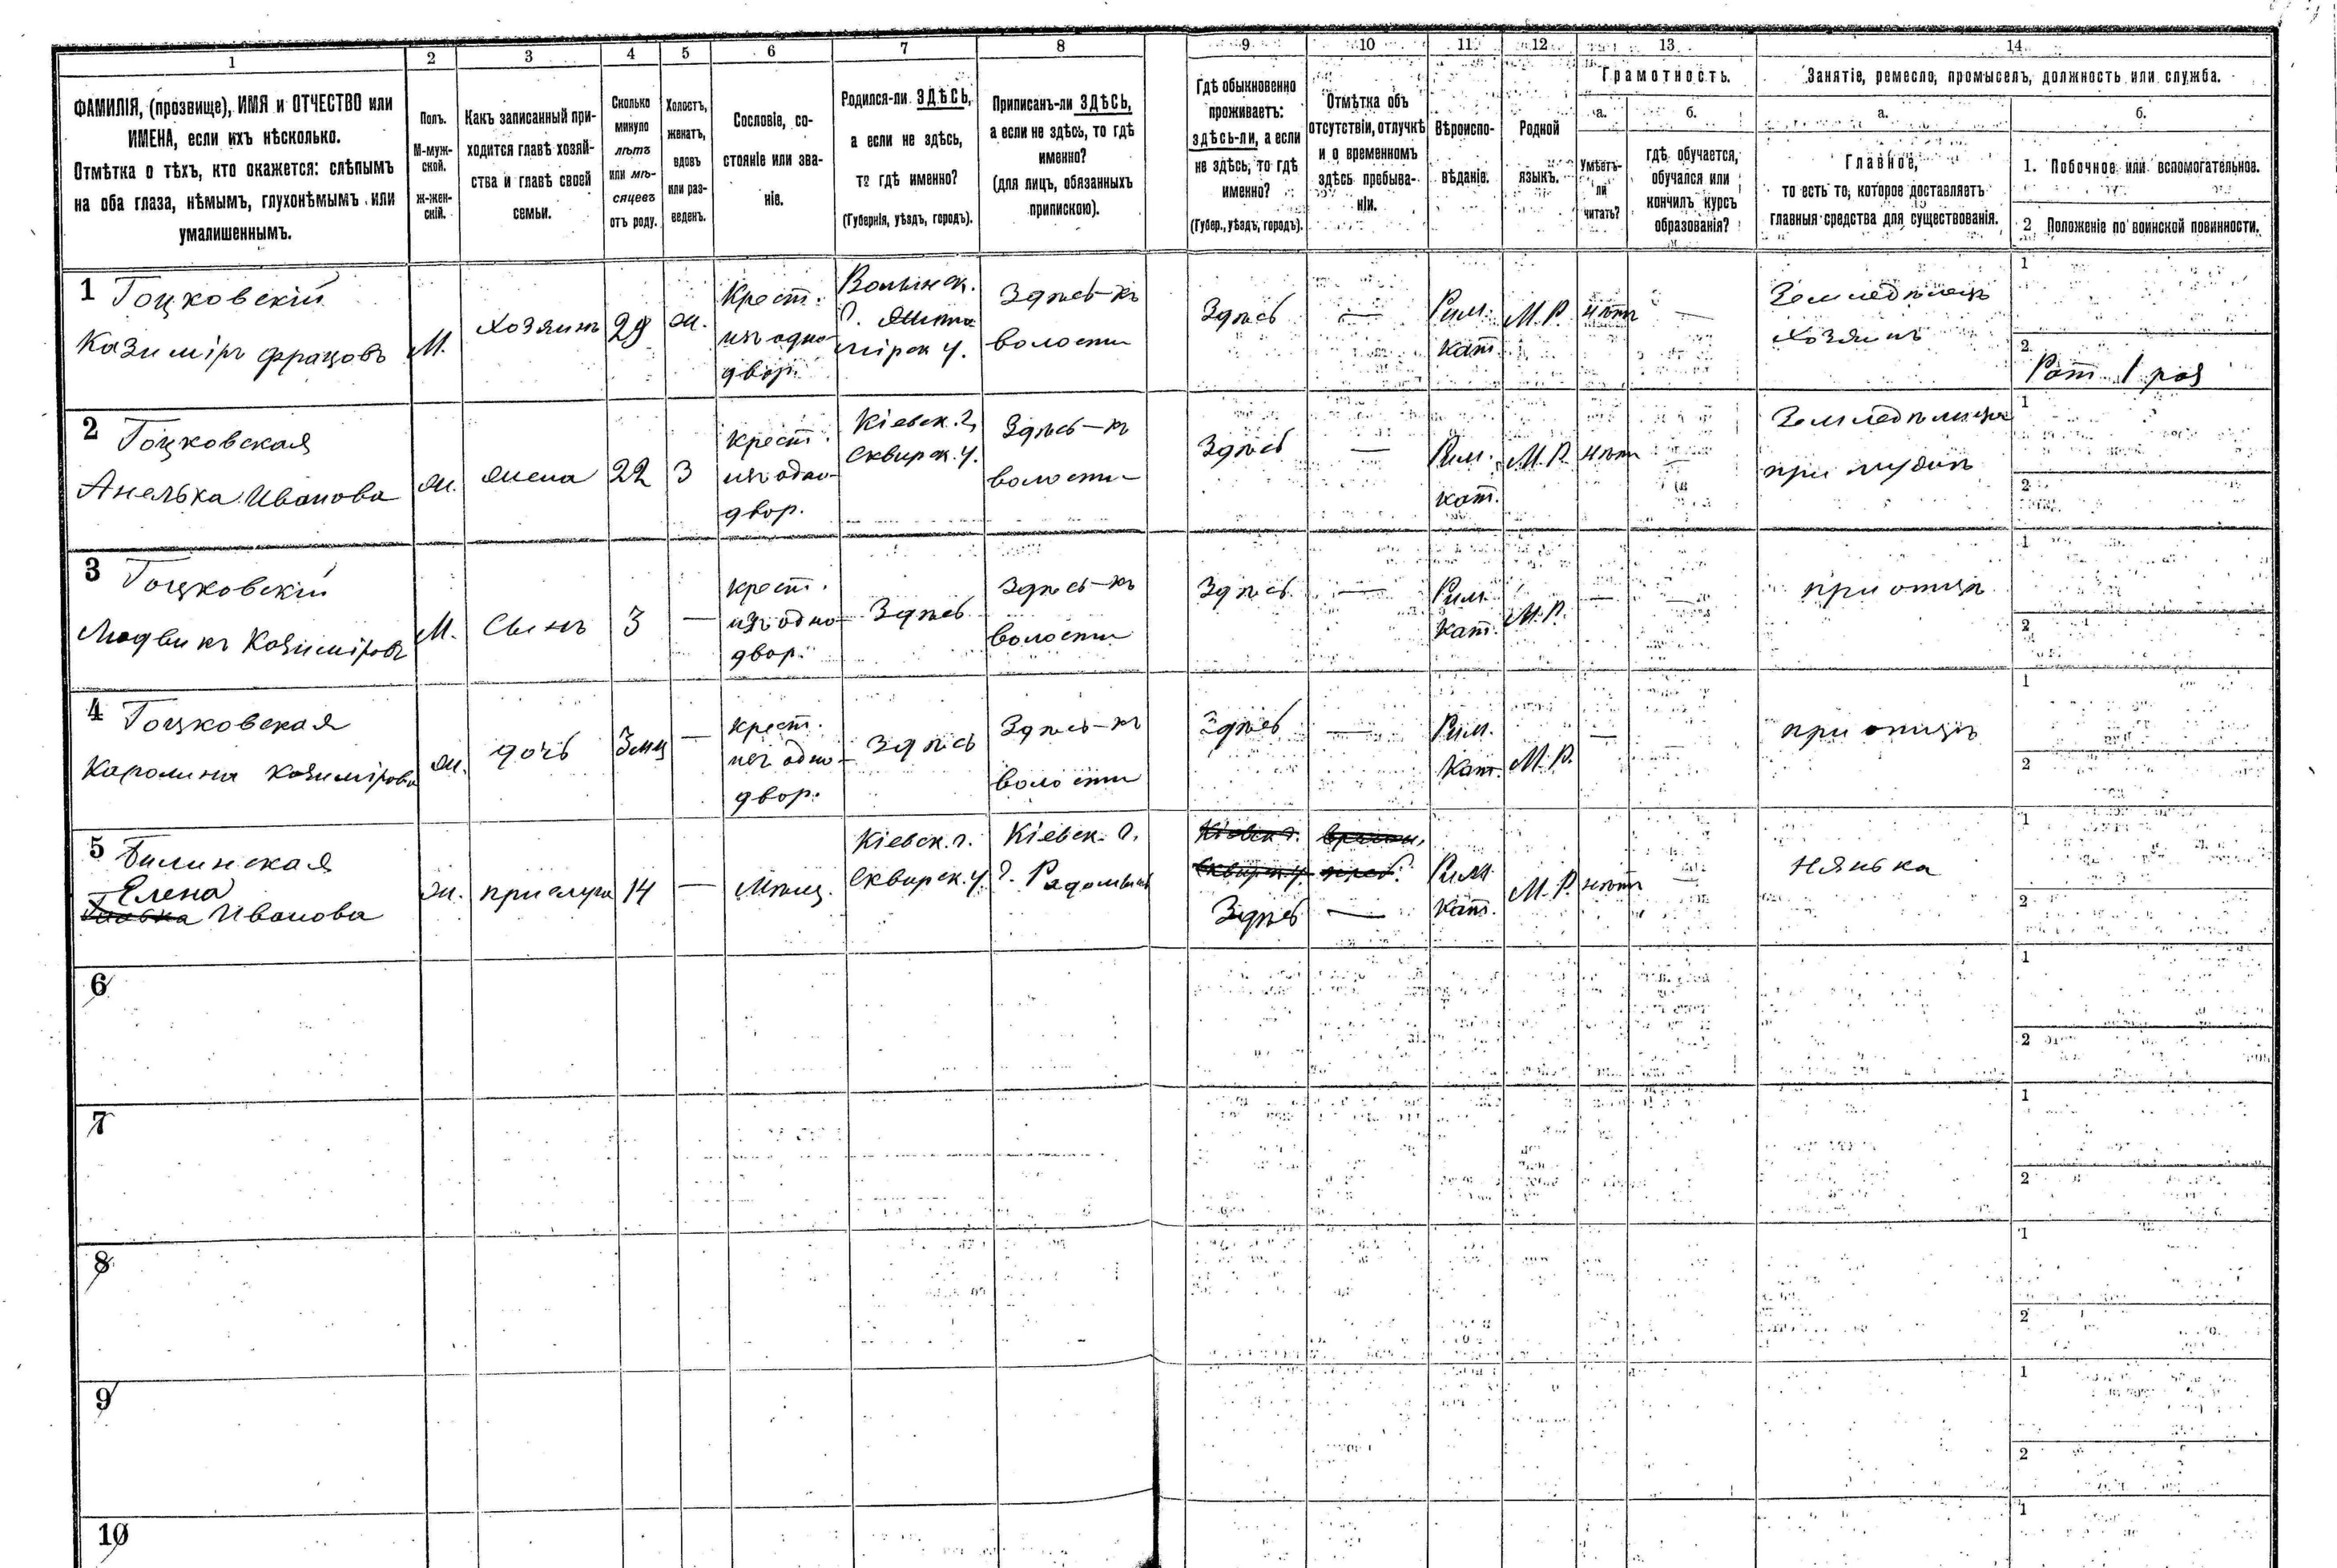 1
2
3
4
5
6
7
8
9
10
11
12
13
14
ФАМИЛІЯ, (прозвище), ИМЯ и ОТЧЕСТВО или
ИМЕНА, если ихъ нѣсколько.
Отмѣтка о тѣхъ, кто окажется: слѣпымъ
на оба глаза, нѣмымъ, глухонѣмымъ или
умалишеннымъ.
Полъ.
М-муж-
ской.
ж-жен-
скій.
Какъ записанный при-
ходится главѣ хозяй-
ства и главѣ своей
семьи.
Сколько
минуло
лѣтъ
или мѣ-
сяцевъ
отъ роду.
Холостъ,
женатъ,
вдовъ
или раз-
веденъ.
Сословіе, со-
стояніе или зва-
ніе.
Родился-ли ЗДѢСЬ,
а если не здѣсь,
то гдѣ именно?
(Губернія, уѣздъ, городъ).
Приписанъ-ли ЗДѢСЬ,
а если не здѣсь, то гдѣ
именно?
(для лицъ, обязанныхъ
припискою).
Гдѣ обыкновенно
проживаетъ:
здѣсь-ли, а если
не здѣсь, то гдѣ
именно?
(Губер., уѣздъ, городъ).
Отмѣтка объ
отсутствіи, отлучкѣ
и о временномъ
здѣсь пребыва-
ніи.
Вѣроиспо-
вѣданіе.
Родной
языкъ.
Грамотность.
а.
Умѣетъ-
ли
читать?
б.
гдѣ обучается,
обучался или
кончилъ курсъ
образованія?
Занятіе, ремесло, промыселъ, должность или служба.
а.
Главное,
то есть то, которое доставляетъ
главныя средства для существованія.
б.
1. Побочное или вспомогательное.
2 Положеніе по воинской повинности.
1 Гоцковскій
Казиміръ Францовъ
М.
Хозяинъ
29
ж.
Крест.
изъ одно-
двор.
Волынск.
г. Жито
мірск у.
Здѣсь-къ
волости
Здѣсь
—
Рим.
кат.
М. Р.
нѣтъ
—
Земледѣлецъ
хозяинъ
1
2
Рат. 1 раз
2 Гоцковская
Анелька Иванова
ж.
жена
22
З
крест.
изъ одно-
двор.
Кіевск. г.
Сквирск. у.
Здѣсь-къ
волости
Здѣсь
—
Рим.
кат.
М. Р.
нѣтъ
—
при мужѣ
1
2
3 Гоцковскій
Людвикъ Казиміровъ
М.
Сынъ
3
—
крест.
изъ одно-
двор.
Здѣсь
Здѣсь-къ
волости
Здѣсь
—
Рим.
Кат.
М. Р.
—
—
при отцѣ
1
2
4 Гоцковская
Каролина Казимірова
ж.
дочь
3 мц
—
крест.
изъ одно-
двор.
Здѣсь
Здѣсь-къ
волости
Здѣсь
—
Рим.
Кат.
М. Р.
—
при отцѣ
1
2
5 Билинская
Елена
Иванова
ж.
прислуга
14
—
Мѣщ.
Кіевск. г.
Сквирск. у.
Кіевск. г.
г. Радомысль
Кіевск г.
Сквирск у.
Здѣсь
времен.
преб.
—
Рим.
Кат.
М. Р.
нѣтъ
—
нянька
1
2
6
1
2
7
1
2
8
1
2
9
1
2
10
1